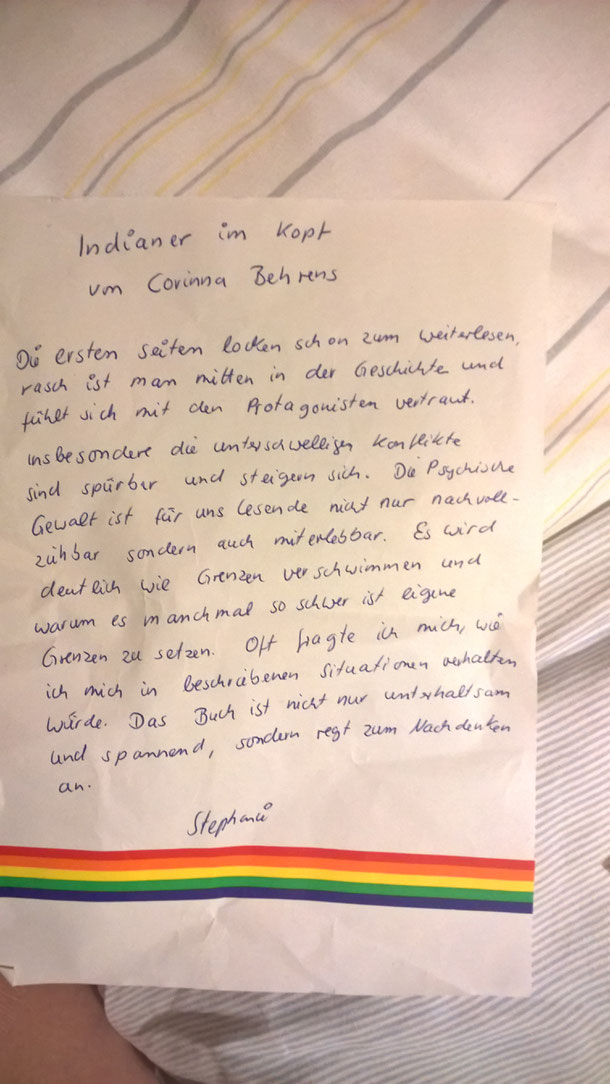 Indianer im Kopf
von Corinna Behrens
Die ersten Seiten locken schon zum weiterlesen,
rasch ist man mitten in der Geschichte und
fühlt sich mit den Protagonisten vertraut.
insbesondere die unterschwelligen Konflikte
sind spürbar und steigern sich. Die Psychische
Gewalt ist für uns lesende nicht nur nachvoll-
zühbar sondern auch miterlebbar. Es wird
deutlich wie Grenzen verschwimmen und
warum es manchmal so schwer ist eigene
Grenzen zu setzen. Oft fragte ich mich, wie
ich mich in beschriebenen Situationen verhalten
würde. Das Buch ist nicht nur unterhaltsam
und spannend, sondern regt zum Nachdenken
an.
Stephanie